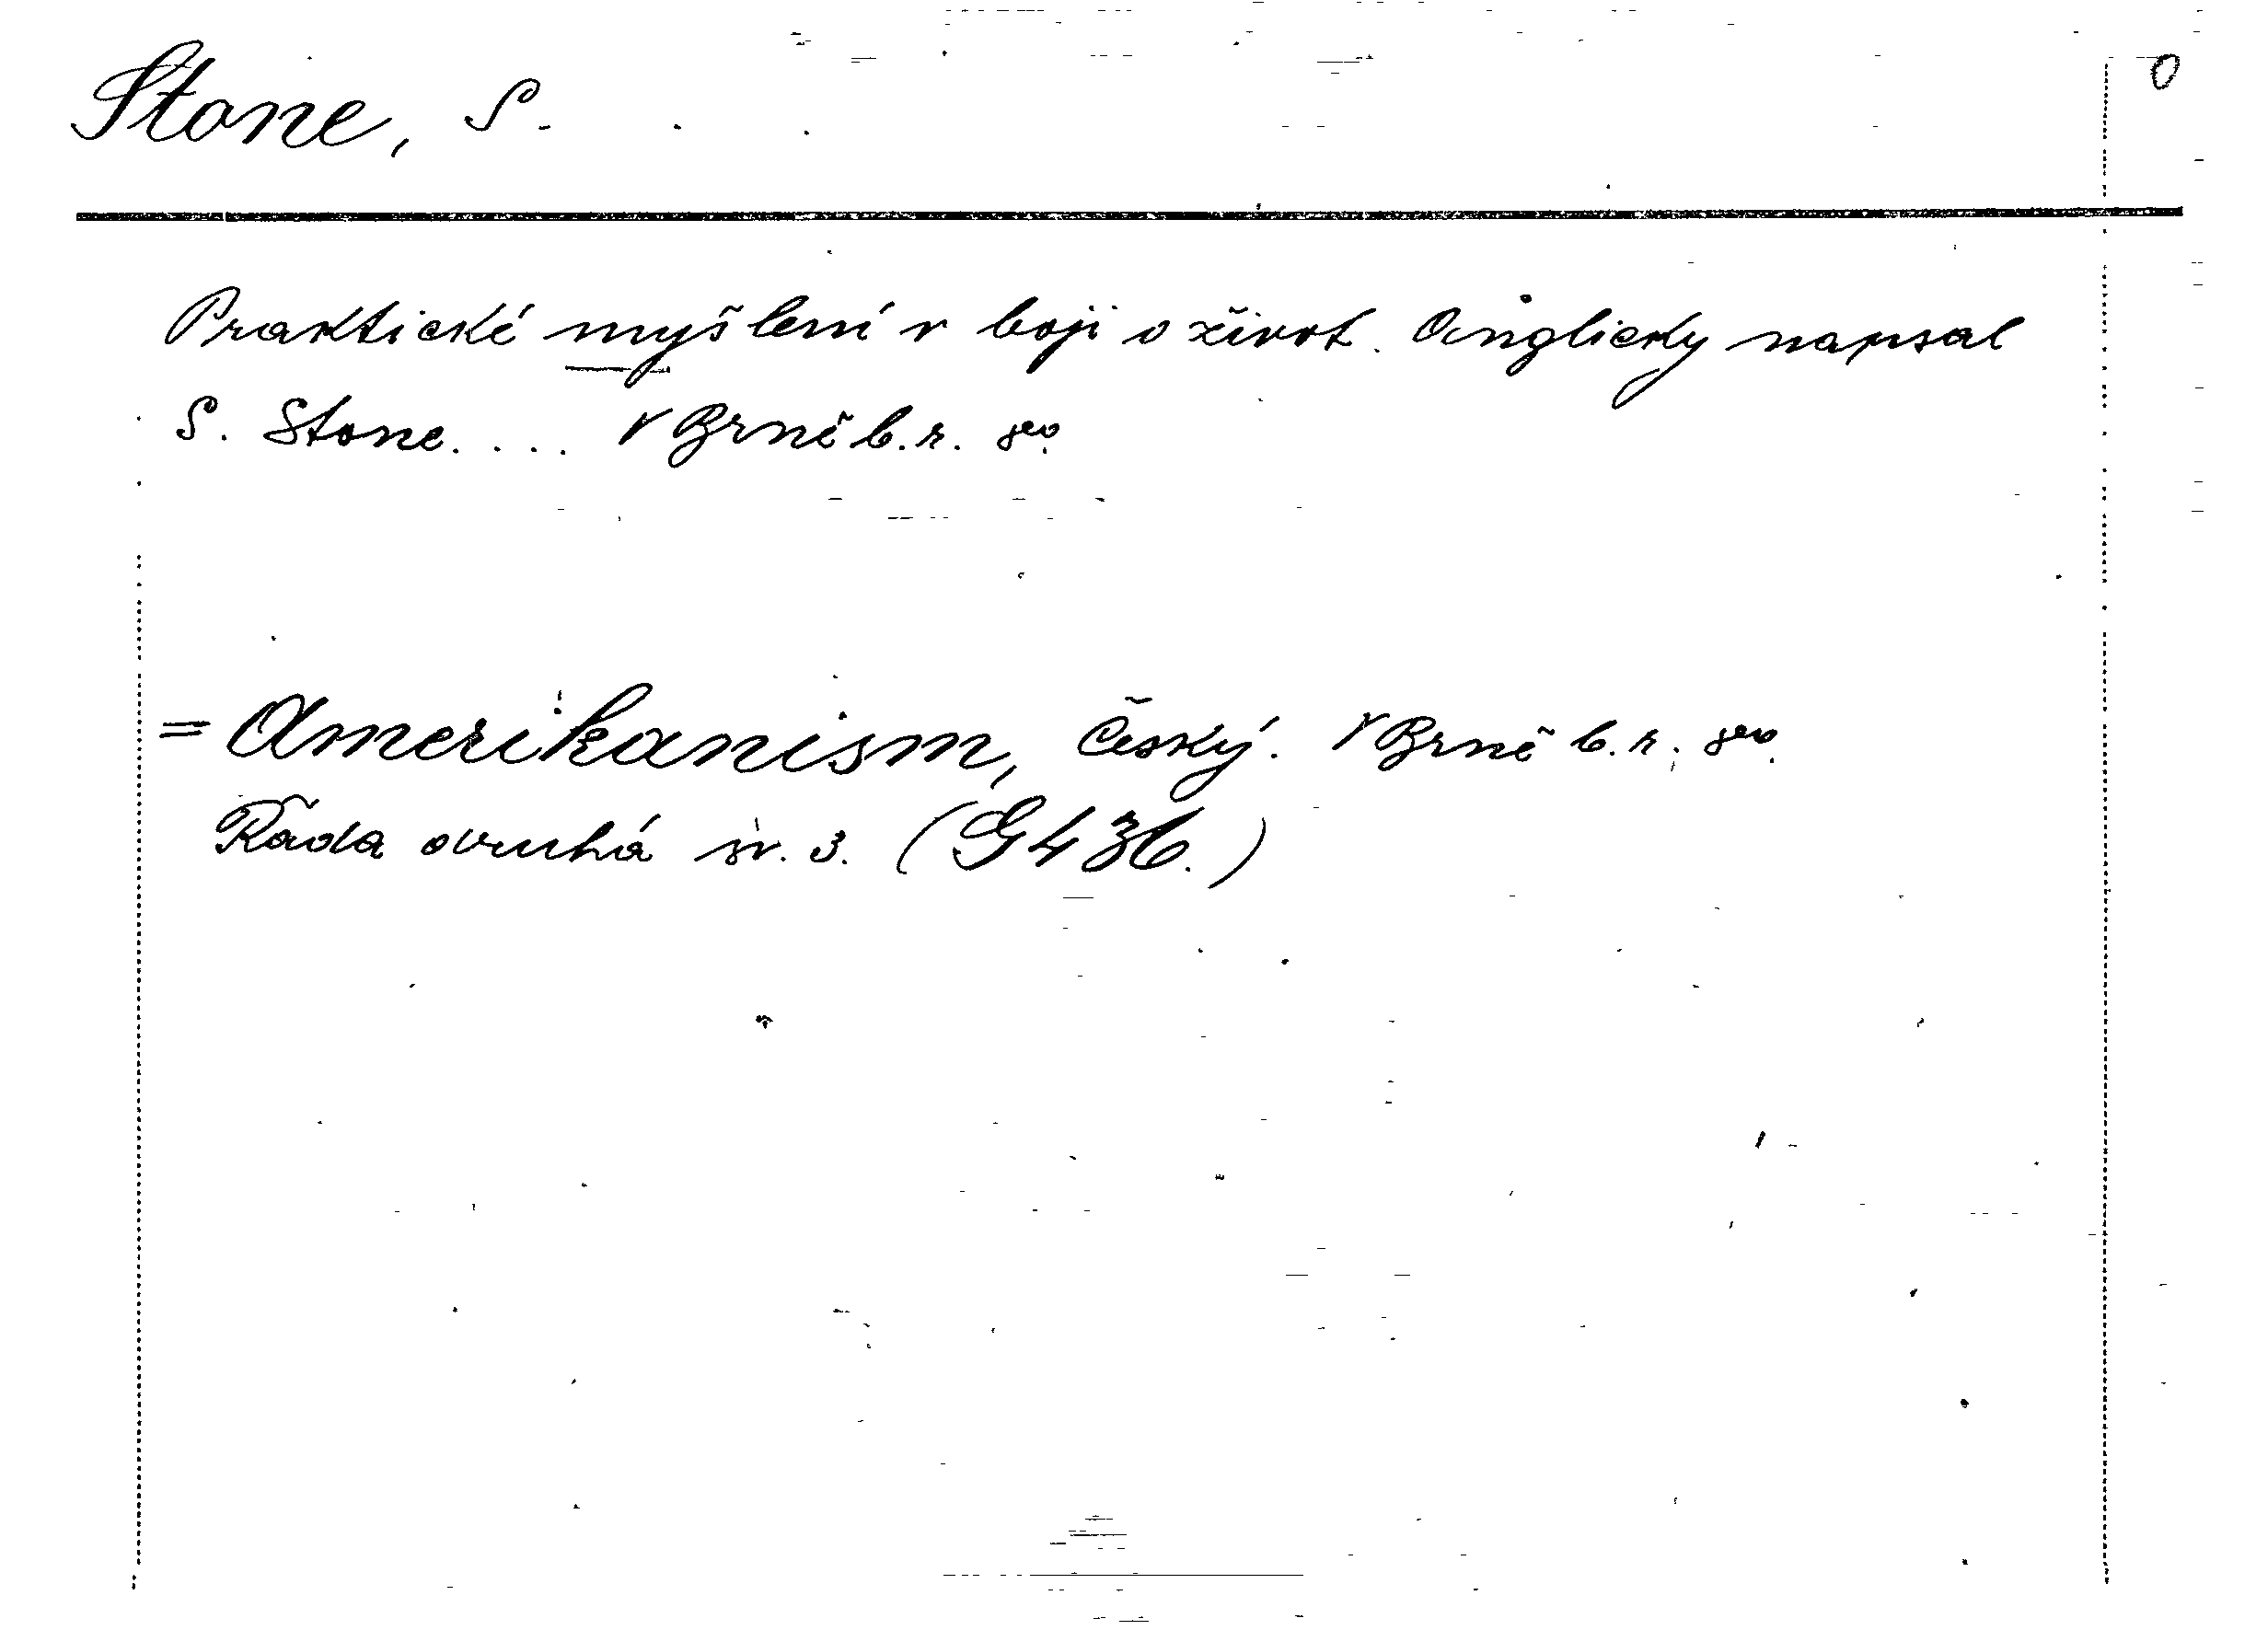 Stone, S. 0
Praktické myšlení v boji o život. Anglicky napsal
S. Stone. ... V Brně b.r. 8vo.
= Amerikanism, Český. V Brně b.r. 8vo.
Řada druhá sv. 3. (G 436.)